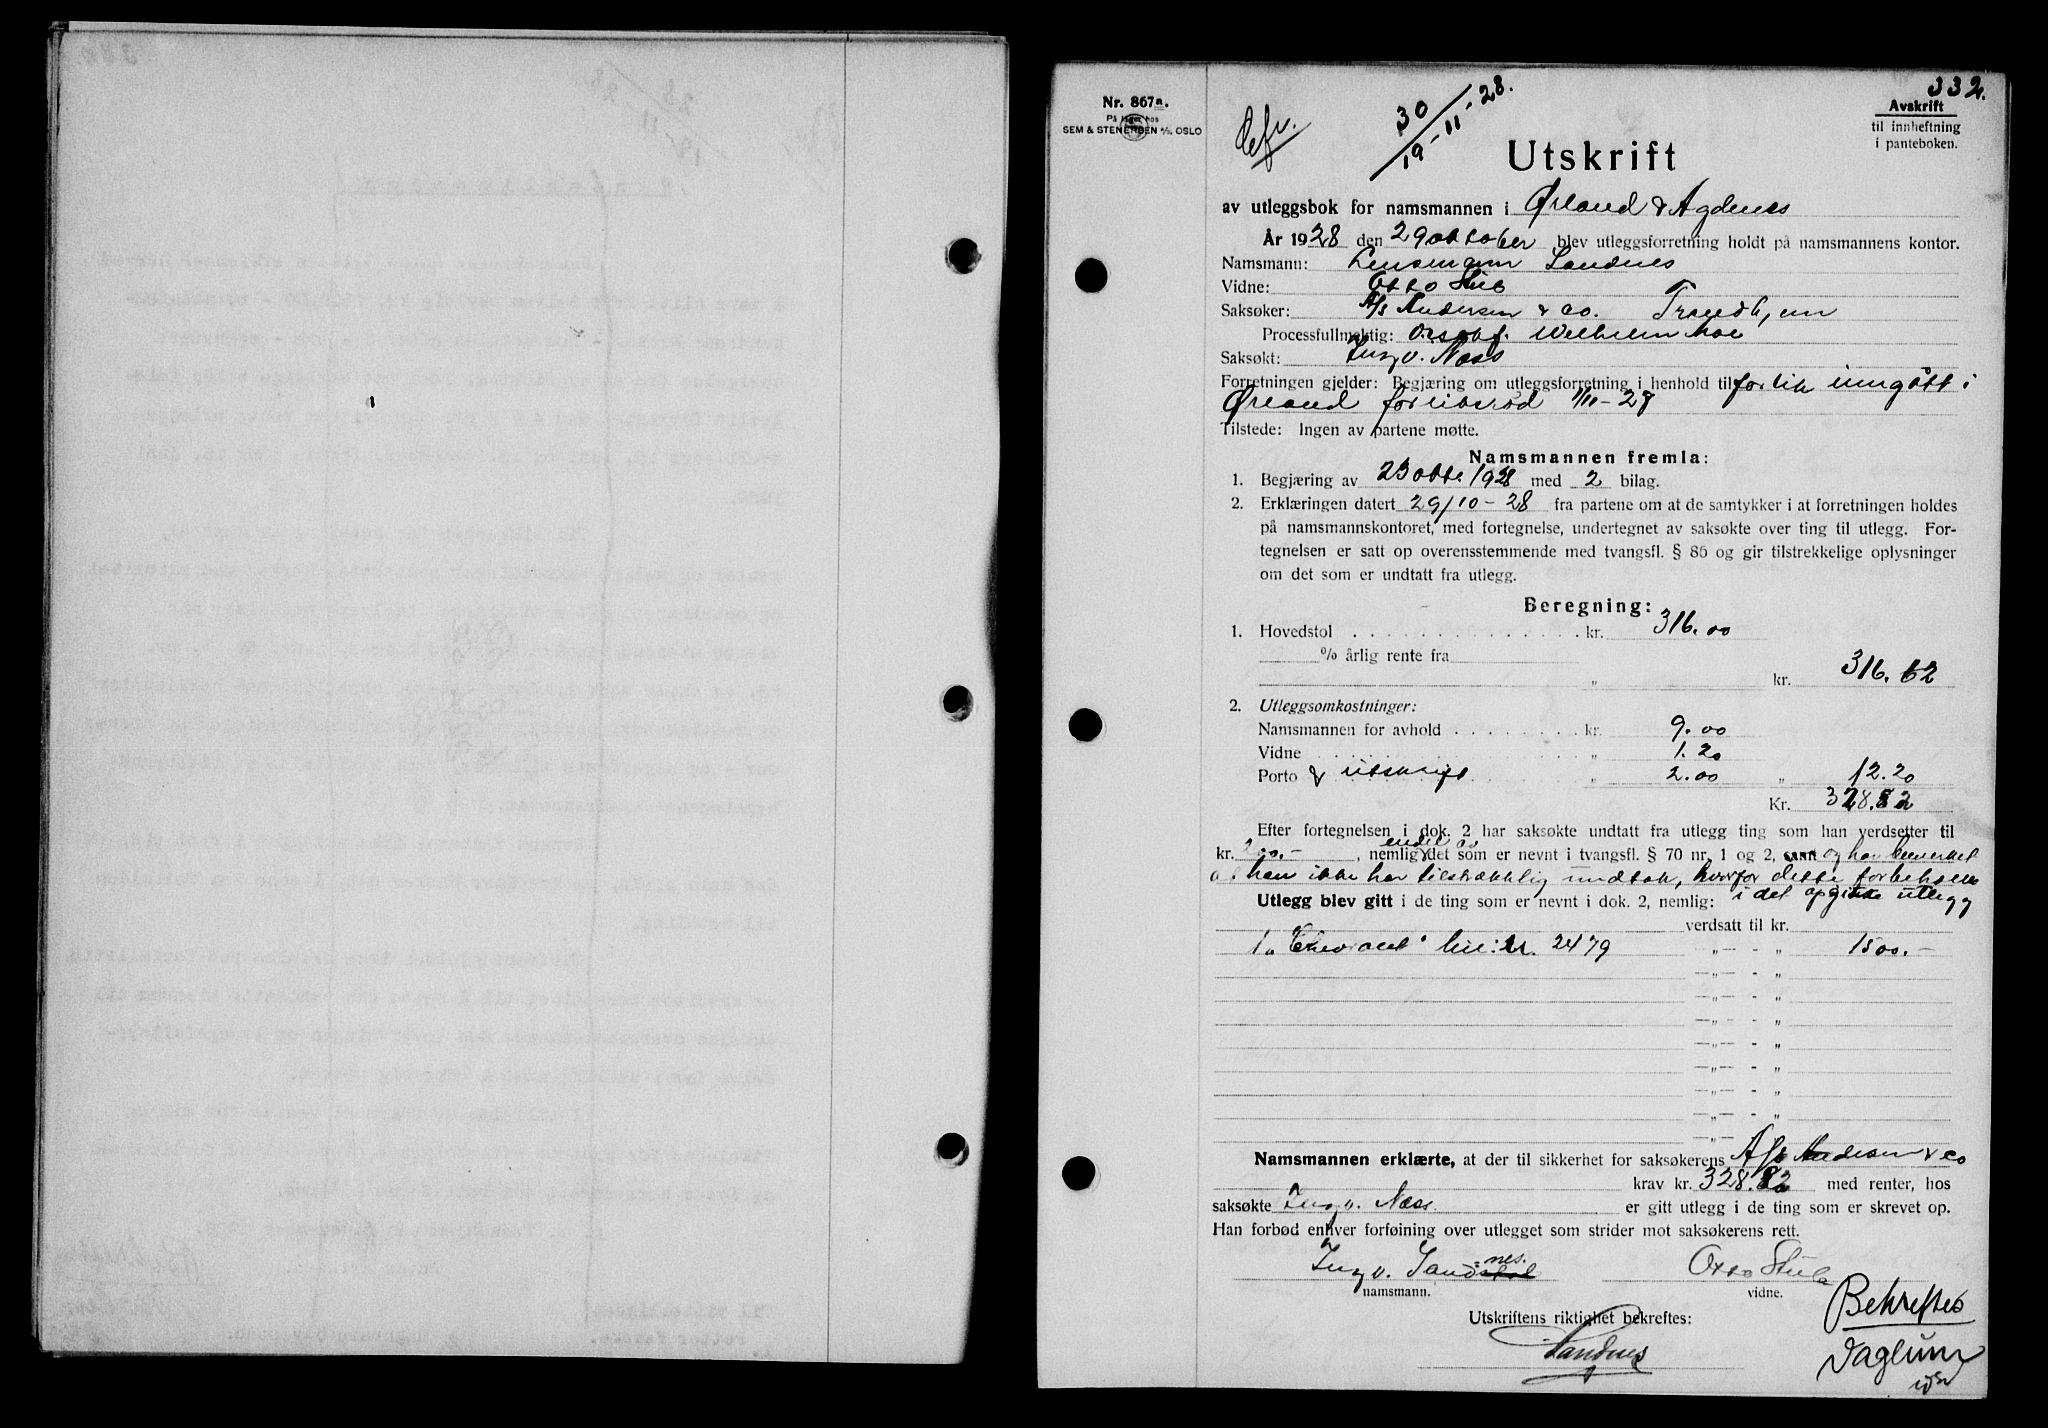 332.
Nr. 867a.
På lager hos
SEM & STENERSEN A/S, OSLO
30/19-11-28.
Avskrift
til innheftning
i panteboken.
Utskrift
av utleggsbok for namsmannen i Ørland & Agdenes
År 1928 den 29 oktober blev utleggsforretning holdt på namsmannens kontor.
Namsmann: Lensmann Sandnes
Vidne: Otto Stub
Saksøker: A/S Andersen & Co. Trondhjem
Processfullmektig: Wilhelm Moe
Saksøkt: Ingv. Næss
Forretningen gjelder: Begjæring om utleggsforretning i henhold til forlik inngått i
Ørland forliksråd
Tilstede: Ingen av partene møtte.
Namsmannen fremla:
1. Begjæring av 23 okt. 1928 med 2 bilag.
2. Erklæringen datert 29/10-28 fra partene om at de samtykker i at forretningen holdes
på namsmannskontoret, med fortegnelse, undertegnet av saksøkte over ting til utlegg. For-
tegnelsen er satt op overensstemmende med tvangsfl. § 86 og gir tilstrekkelige oplysninger
om det som er undtatt fra utlegg.
Beregning:
1. Hovedstol kr. 316.00
% årlig rente fra
" kr. 316.62
2. Utleggsomkostninger:
Namsmannen for avhold kr. 9.00
Vidne " 1.20
Porto & utskrift " 2.00 " 12.20
Kr. 328.82
Efter fortegnelsen i dok. 2 har saksøkte undtatt fra utlegg ting som han verdsetter til
kr. 200.- , nemlig endel av det som er nevnt i tvangsfl. § 70 nr. 1 og 2, samt og har bemerket
at han ikke har tilstrekkelig undtak, hvorfor dette forbeholdes
i det opgitte utlegg
Utlegg blev gitt i de ting som er nevnt i dok. 2, nemlig:
verdsatt til kr.
1 "Chevrolet" bil: nr. 2479 1500.-
Namsmannen erklærte, at der til sikkerhet for saksøkerens A/S Andersen & Co
krav kr. 328.82 med renter, hos
saksøkte Ingv. Næss er gitt utlegg i de ting som er skrevet op.
Han forbød enhver forføining over utlegget som strider mot saksøkerens rett.
Ingv. Sandnes. Otto Stub
namsmann. vidne.
Utskriftens riktighet bekreftes:
Sandnes
Bekreftes
Vaglum